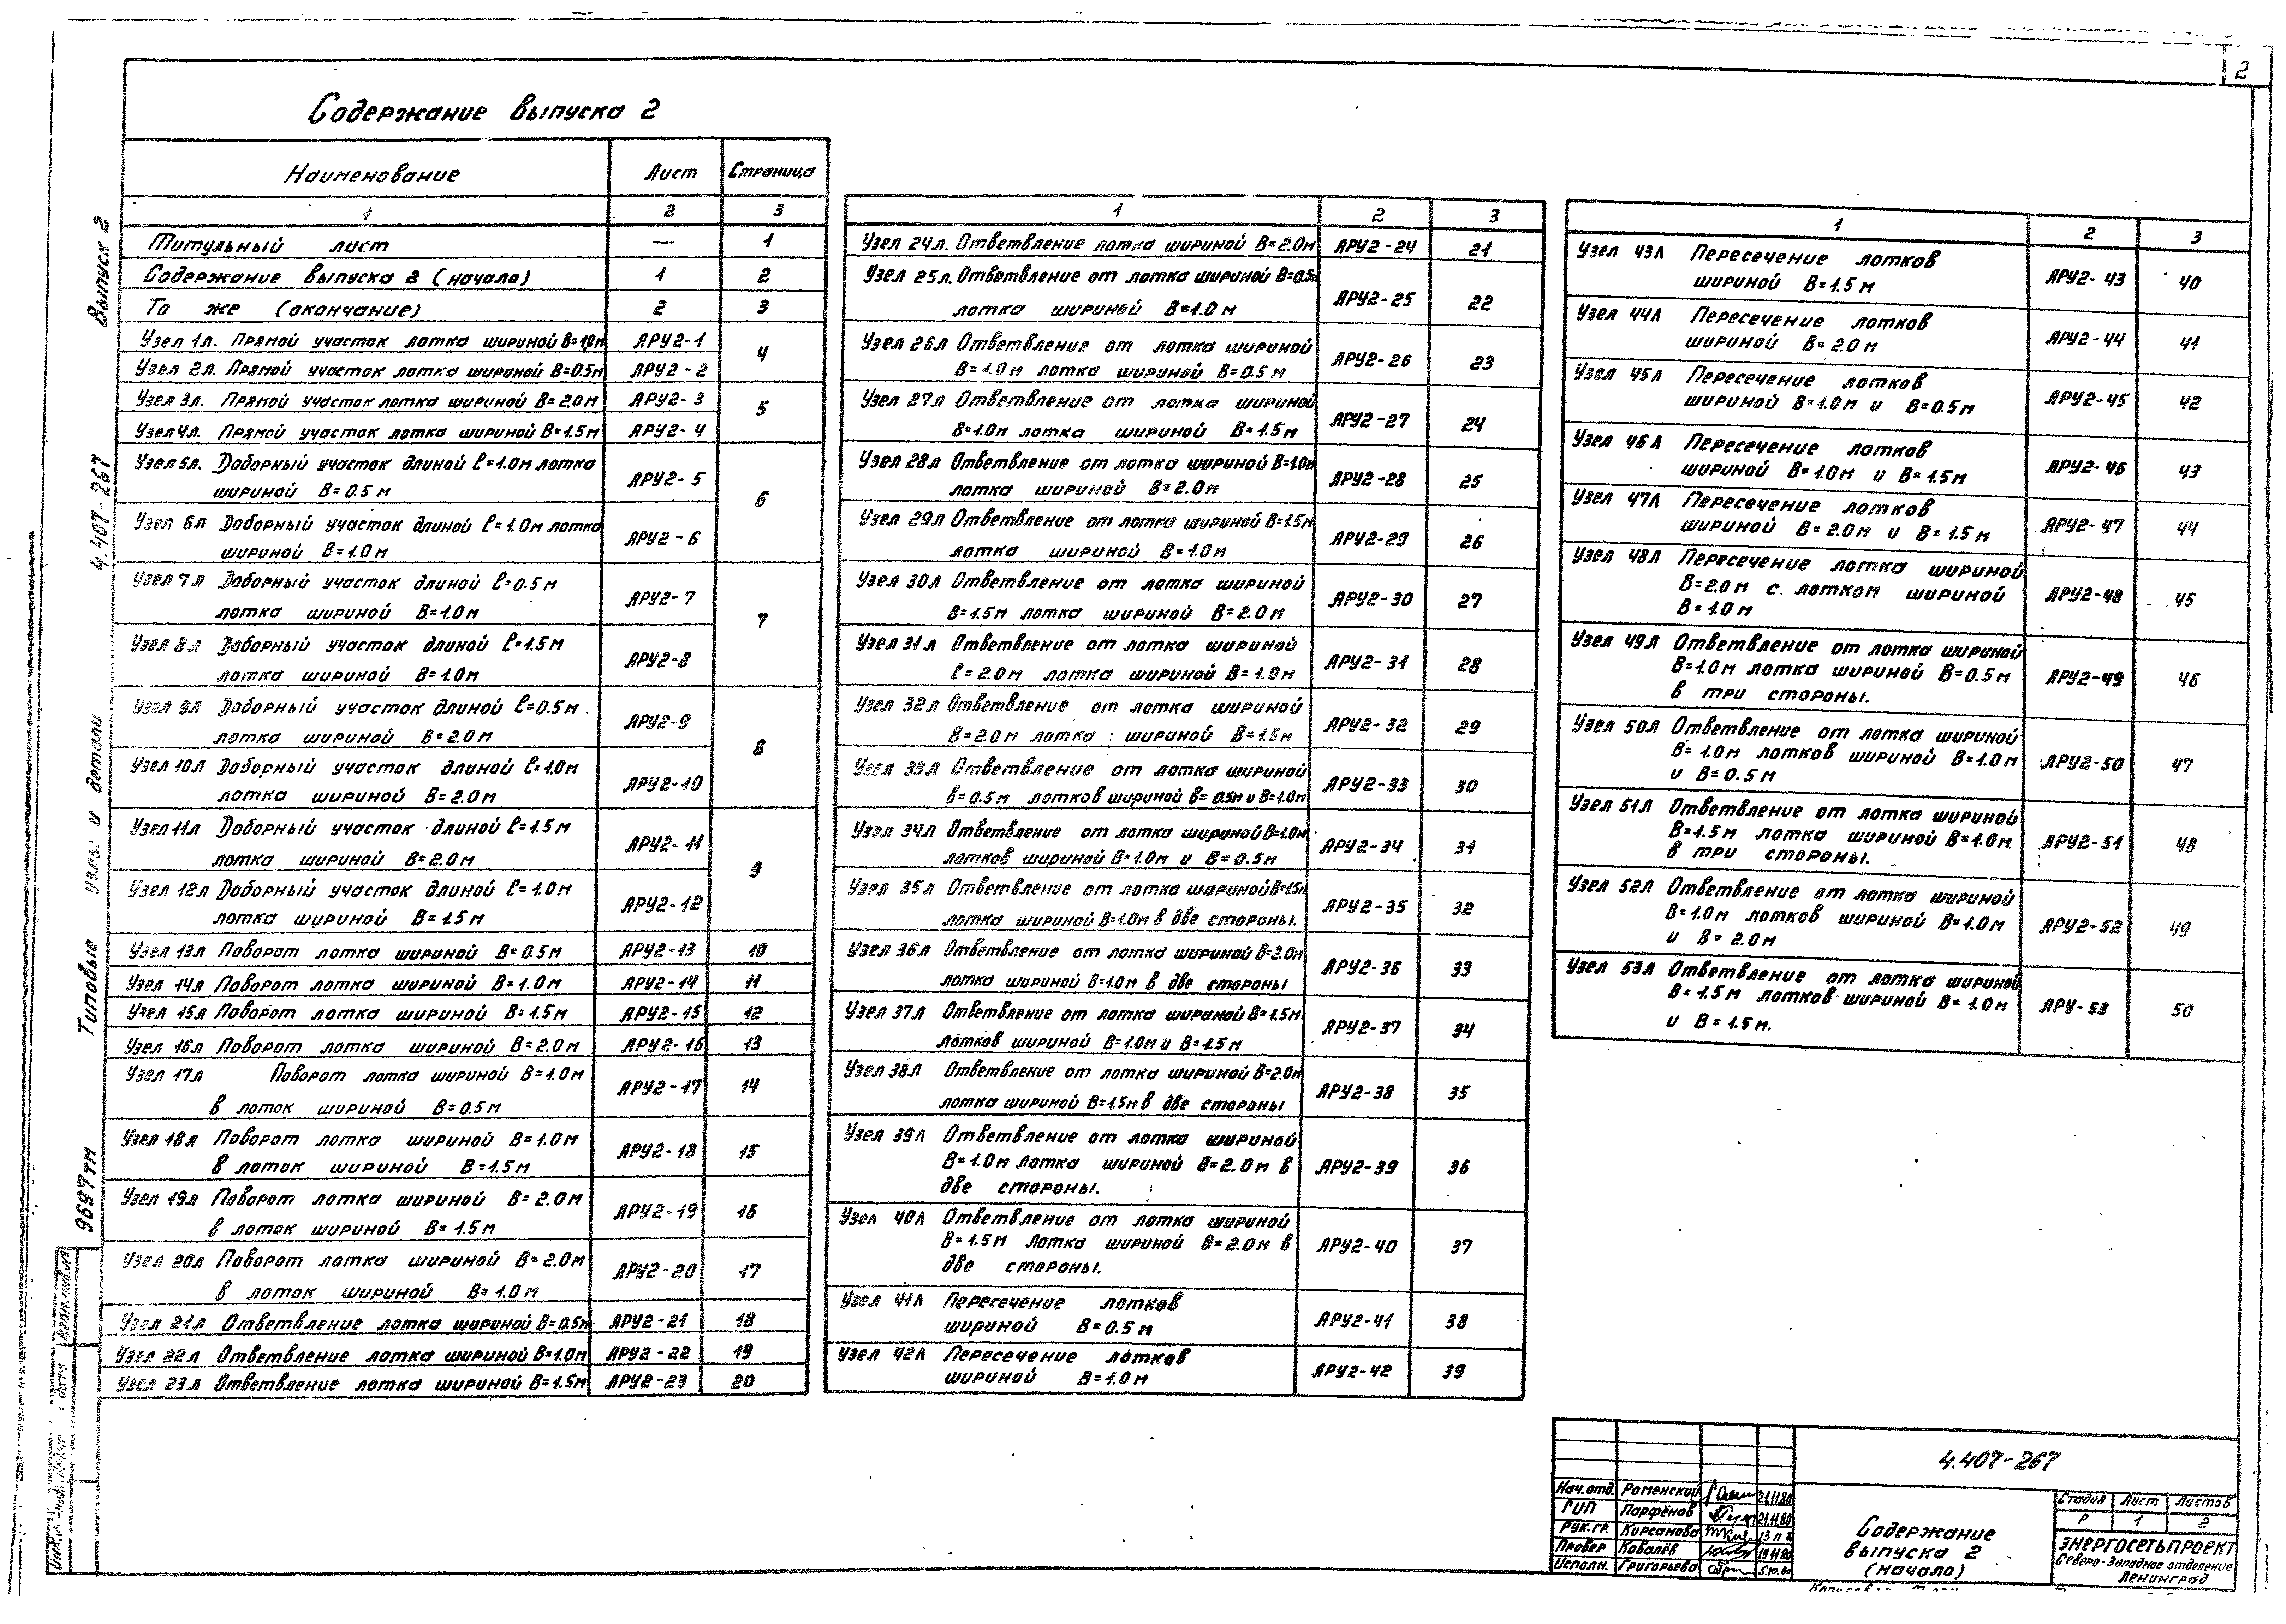 2
Содержание выпуска 2
Наименование Лист Страница
1 2 3
Титульный лист — 1
Содержание выпуска 2 (начало) 1 2
То же (окончание) 2 3
Узел 1л. Прямой участок лотка шириной В=1,0м АРУ2-1
4
Узел 2л. Прямой участок лотка шириной В=0.5м АРУ2-2
Узел 3л. Прямой участок лотка шириной В=2.0м АРУ2-3
5
Узел 4л. Прямой участок лотка шириной В=1.5м АРУ2-4
Узел 5л. Доборный участок длиной ℓ=1.0м лотка
шириной В=0.5м АРУ2-5
6
Узел 6л Доборный участок длиной ℓ=1.0м лотка
шириной В=1.0м АРУ2-6
Узел 7л Доборный участок длиной ℓ=0.5м
лотка шириной В=1.0м АРУ2-7
7
Узел 8л Доборный участок длиной ℓ=1.5м
лотка шириной В=1.0м АРУ2-8
Узел 9л Доборный участок длиной ℓ=0.5м
лотка шириной В=2.0м АРУ2-9
8
Узел 10л Доборный участок длиной ℓ=1.0м
лотка шириной В=2.0м АРУ2-10
Узел 11л Доборный участок длиной ℓ=1.5м
лотка шириной В=2.0м АРУ2-11
9
Узел 12л Доборный участок длиной ℓ=1.0м
лотка шириной В=1.5м АРУ2-12
Узел 13л Поворот лотка шириной В=0.5м АРУ2-13 10
Узел 14л Поворот лотка шириной В=1.0м АРУ2-14 11
Узел 15л Поворот лотка шириной В=1.5м АРУ2-15 12
Узел 16л Поворот лотка шириной В=2.0м АРУ2-16 13
Узел 17л Поворот лотка шириной В=1.0м
в лоток шириной В=0.5м АРУ2-17 14
Узел 18л Поворот лотка шириной В=1.0м
в лоток шириной В=1.5м АРУ2-18 15
Узел 19л Поворот лотка шириной В=2.0м
в лоток шириной В=1.5м АРУ2-19 16
Узел 20л Поворот лотка шириной В=2.0м
в лоток шириной В=1.0м АРУ2-20 17
Узел 21л Ответвление лотка шириной В=0.5м АРУ2-21 18
Узел 22л Ответвление лотка шириной В=1.0м АРУ2-22 19
Узел 23л Ответвление лотка шириной В=1.5м АРУ2-23 20
1 2 3
Узел 24л. Ответвление лотка шириной В=2.0м АРУ2-24 21
Узел 25л. Ответвление от лотка шириной В=0.5м
лотка шириной В=1.0м АРУ2-25 22
Узел 26л Ответвление от лотка шириной
В=1.0м лотка шириной В=0.5м АРУ2-26 23
Узел 27л Ответвление от лотка шириной
В=1.0м лотка шириной В=1.5м АРУ2-27 24
Узел 28л Ответвление от лотка шириной В=1.0м
лотка шириной В=2.0м АРУ2-28 25
Узел 29л Ответвление от лотка шириной В=1.5м
лотка шириной В=1.0м АРУ2-29 26
Узел 30л Ответвление от лотка шириной
В=1.5м лотка шириной В=2.0м АРУ2-30 27
Узел 31л Ответвление от лотка шириной
ℓ=2.0м лотка шириной В=1.0м АРУ2-31 28
Узел 32л Ответвление от лотка шириной
В=2.0м лотка шириной В=1.5м АРУ2-32 29
Узел 33л Ответвление от лотка шириной
в=0.5м лотков шириной в=0.5м и В=1.0м АРУ2-33 30
Узел 34л Ответвление от лотка шириной В=1.0м
лотков шириной В=1.0м и В=0.5м АРУ2-34 31
Узел 35л Ответвление от лотка шириной В=1.5м
лотка шириной В=1.0м в две стороны. АРУ2-35 32
Узел 36л Ответвление от лотка шириной В=2.0м
лотка шириной В=1.0м в две стороны АРУ2-36 33
Узел 37л Ответвление от лотка шириной В=1.5м
лотков шириной В=1.0м и В=1.5м АРУ2-37 34
Узел 38л Ответвление от лотка шириной В=2.0м
лотка шириной В=1.5м в две стороны АРУ2-38 35
Узел 39л Ответвление от лотка шириной
В=1.0м лотка шириной В=2.0м в
две стороны. АРУ2-39 36
Узел 40л Ответвление от лотка шириной
В=1.5м лотка шириной В=2.0м в
две стороны. АРУ2-40 37
Узел 41л Пересечение лотков
шириной В=0.5м АРУ2-41 38
Узел 42л Пересечение лотков
шириной В=1.0м АРУ2-42 39
1 2 3
Узел 43л Пересечение лотков
шириной В=1.5м АРУ2-43 40
Узел 44л Пересечение лотков
шириной В=2.0м АРУ2-44 41
Узел 45л Пересечение лотков
шириной В=1.0м и В=0.5м АРУ2-45 42
Узел 46л Пересечение лотков
шириной В=1.0м и В=1.5м АРУ2-46 43
Узел 47л Пересечение лотков
шириной В=2.0м и В=1.5м АРУ2-47 44
Узел 48л Пересечение лотка шириной
В=2.0м с лотком шириной
В=1.0м АРУ2-48 45
Узел 49л Ответвление от лотка шириной
В=1.0м лотка шириной В=0.5м
в три стороны. АРУ2-49 46
Узел 50л Ответвление от лотка шириной
В=1.0м лотков шириной В=1.0м
и В=0.5м АРУ2-50 47
Узел 51л Ответвление от лотка шириной
В=1.5м лотка шириной В=1.0м
в три стороны. АРУ2-51 48
Узел 52л Ответвление от лотка шириной
В=1.0м лотков шириной В=1.0м
и В=2.0м АРУ2-52 49
Узел 53л Ответвление от лотка шириной
В=1.5м лотков шириной В=1.0м
и В=1.5м. АРУ-53 50
9697тм Типовые узлы и детали 4.407-267 Выпуск 2
4.407-267
Нач.отд. Роменский 21.11.80
ГИП Парфёнов 21.11.80
Рук.гр. Кирсанова 13.11.8
Провер Ковалёв 19.11.80
Исполн. Григорьева 5.10.80
Содержание
выпуска 2
(начало)
Стадия Лист Листов
Р 1 2
ЭНЕРГОСЕТЬПРОЕКТ
Северо-Западное отделение
Ленинград